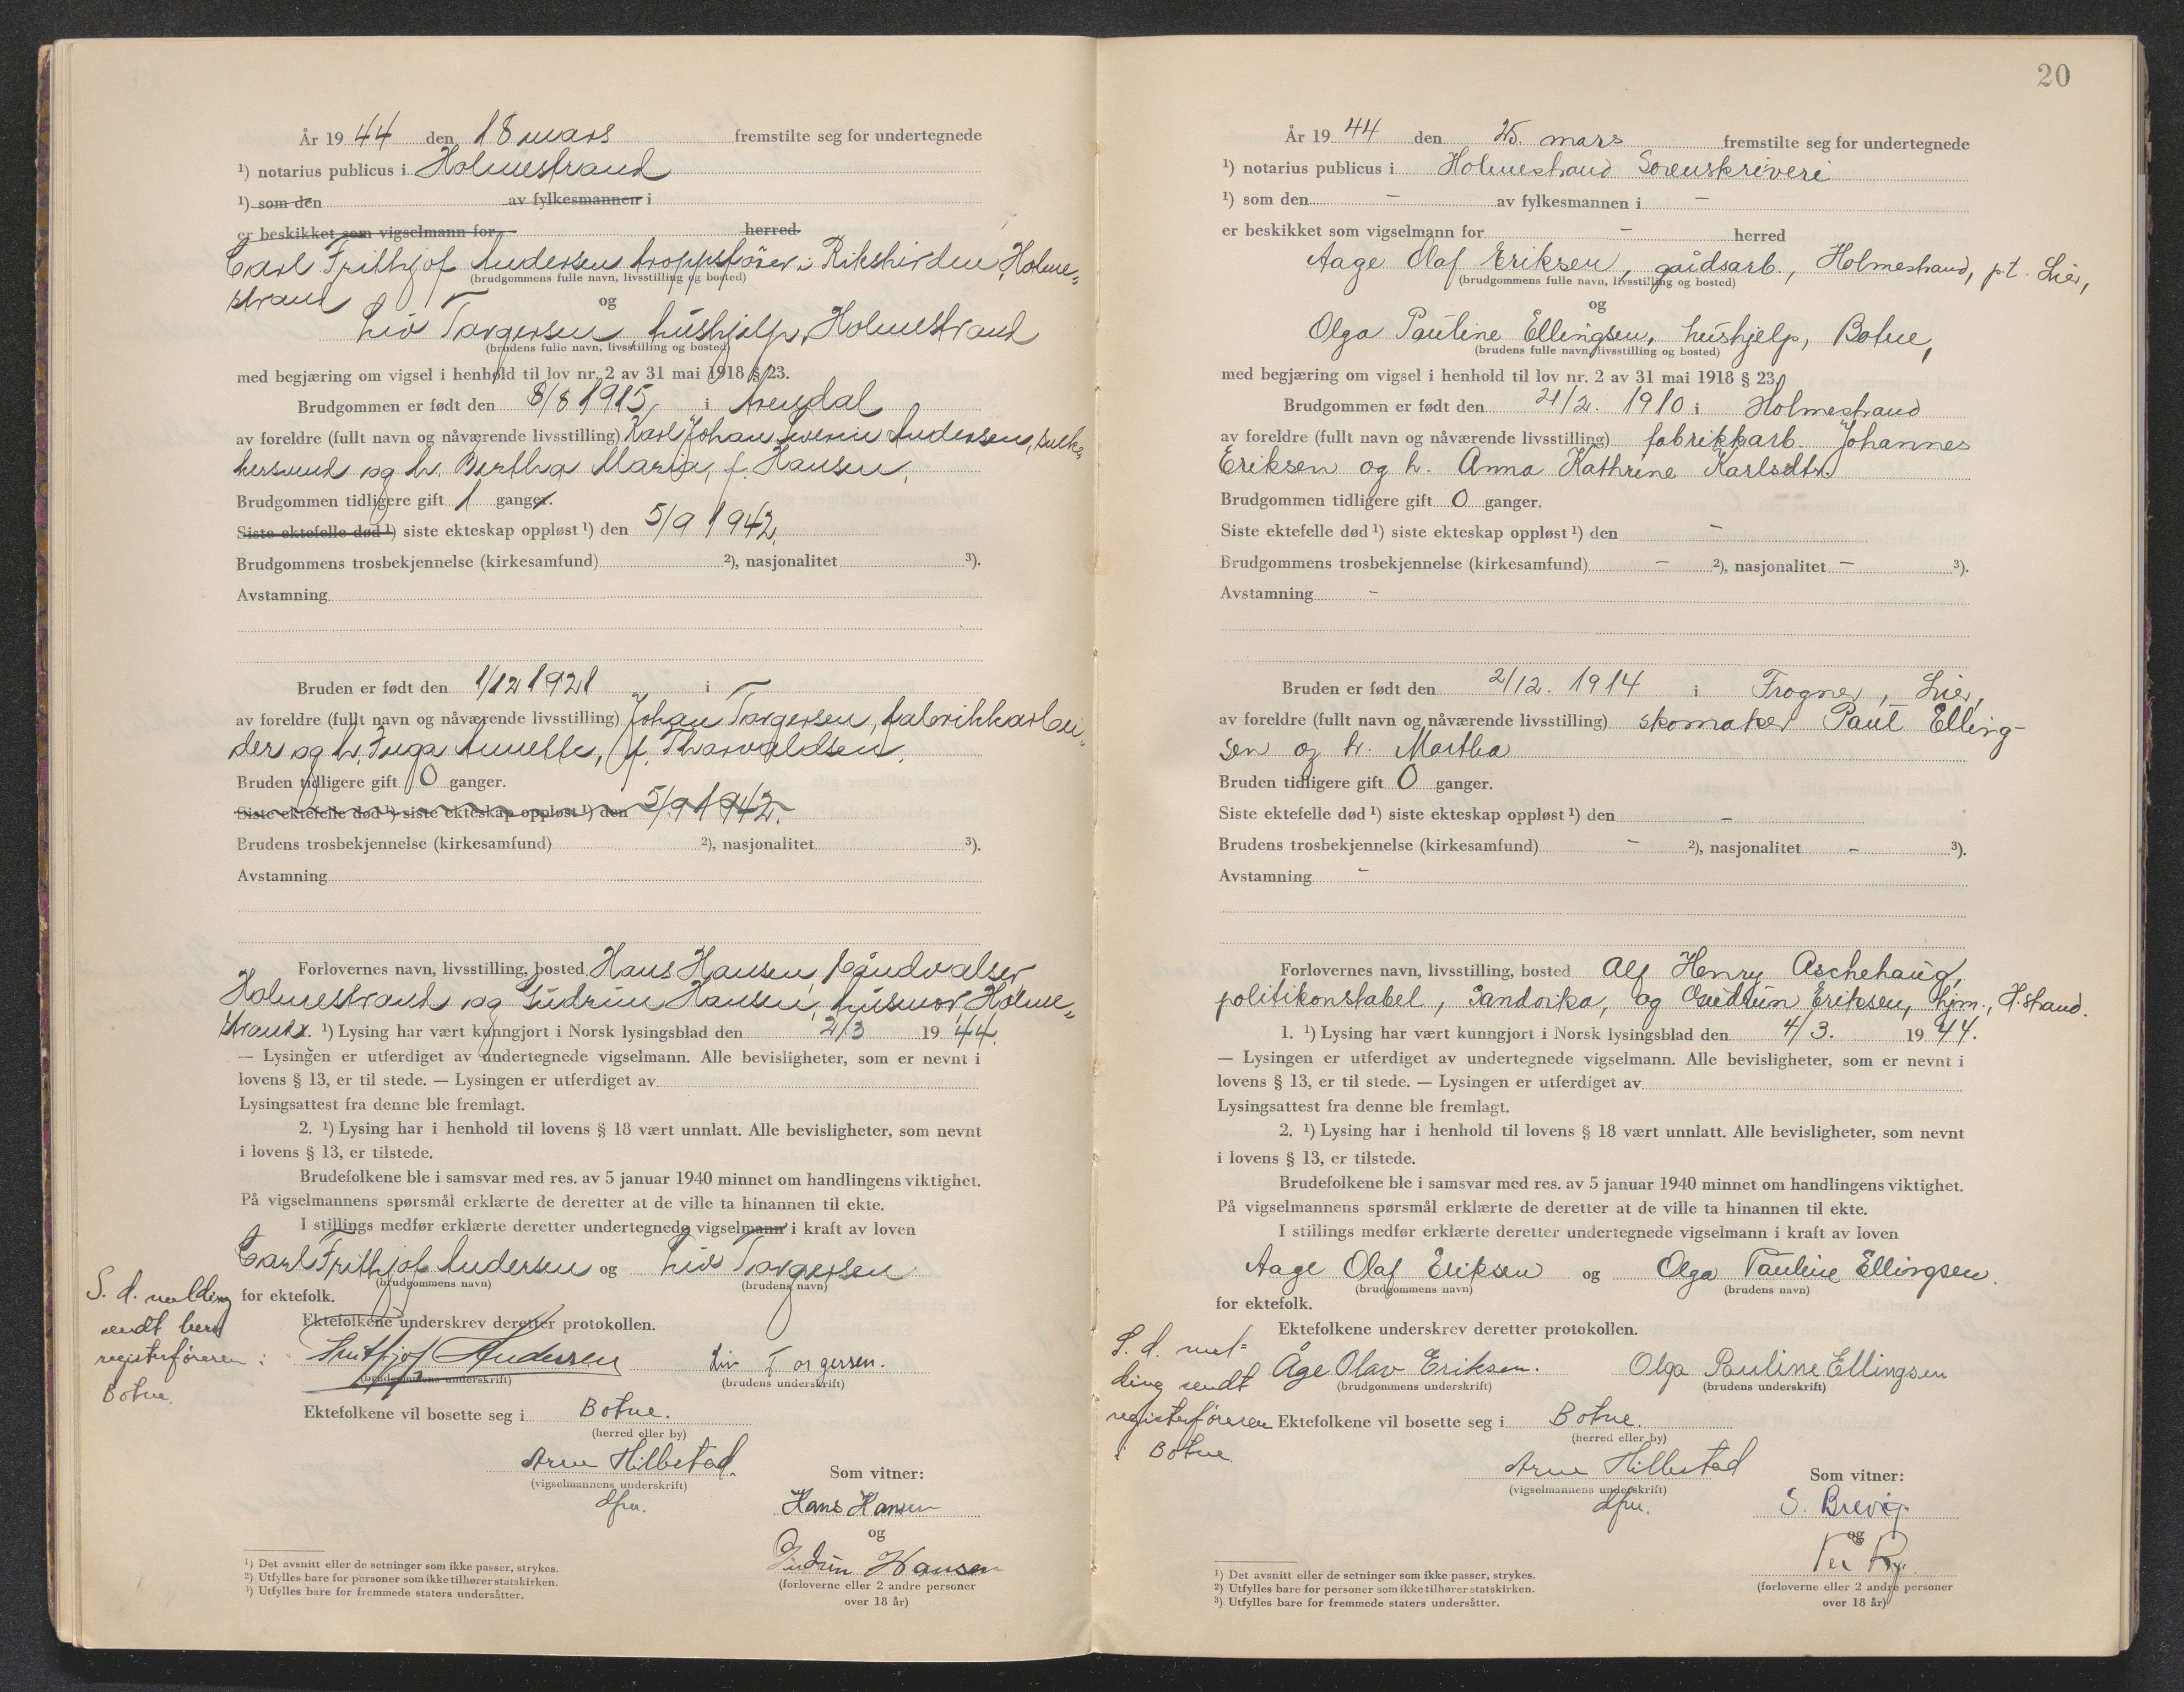 År 1944 den 18 mars fremstilte seg for undertegnede
¹) notarius publicus i Holmestrand
¹) som den av fylkesmannen i
er beskikket som vigselmann for herred.
Carl Frithjof Andersen troppsfører i Rikshirden, Holme-
strand
(brudgommens fulle navn, livsstilling og bosted)
og
Liv Torgersen hushjelp, Holmestrand
(brudens fulle navn, livsstilling og bosted)
med begjæring om vigsel i henhold til lov nr. 2 av 31 mai 1918 § 23.
Brudgommen er født den 8/8 1915, i Arendal
av foreldre (fullt navn og nåværende livsstilling) Karl Johan Severin Andersen,
og h. Bertha Maria, f. Hansen.
Brudgommen tidligere gift 1 ganger.
Siste ektefelle død ¹) siste ekteskap oppløst ¹) den 5/9 1942.
Brudgommens trosbekjennelse (kirkesamfund) ²), nasjonalitet ³).
Avstamning
Bruden er født den 1/12 1921 i
av foreldre (fullt navn og nåværende livsstilling) Johan Torgersen, fabrikkarbei-
der og h. Inga Annette, f. Thorvaldsen.
Bruden tidligere gift 0 ganger.
Siste ektefelle død ¹) siste ekteskap oppløst ¹) den 5/9 1942.
Brudens trosbekjennelse (kirkesamfund) ²), nasjonalitet ³).
Avstamning
Forlovernes navn, livsstilling, bosted Hans Hansen, båndvalser
Holmestrand og Gudrun Hansen, husmor, Holme-
strand. ¹) Lysing har vært kunngjort i Norsk lysingsblad den 2/3 1944.
— Lysingen er utferdiget av undertegnede vigselmann. Alle bevisligheter, som er nevnt i
lovens § 13, er til stede. — Lysingen er utferdiget av
Lysingsattest fra denne ble fremlagt.
2. ¹) Lysing har i henhold til lovens § 18 vært unnlatt. Alle bevisligheter, som nevnt
i lovens § 13, er tilstede.
Brudefolkene ble i samsvar med res. av 5 januar 1940 minnet om handlingens viktighet.
På vigselmannens spørsmål erklærte de deretter at de ville ta hinannen til ekte.
I stillings medfør erklærte deretter undertegnede vigselmann i kraft av loven
Carl Frithjof Andersen og Liv Torgersen
(brudgommens navn) (brudens navn)
for ektefolk.
S. d. melding
sendt herr
registerføreren i
Botne.
Ektefolkene underskrev deretter protokollen.
Frithjof Andersen Liv Torgersen.
(brudgommens underskrift) (brudens underskrift)
Ektefolkene vil bosette seg i Botne.
(herred eller by)
Arne Hillestad
(vigselmannens underskrift)
dfm.
Som vitner:
Hans Hansen
og
Gudrun Hansen
(forloverne eller 2 andre personer
over 18 år)
¹) Det avsnitt eller de setninger som ikke passer, strykes.
²) Utfylles bare for personer som ikke tilhører statskirken.
³) Utfylles bare for fremmede staters undersåtter.
20
År 1944 den 25. mars fremstilte seg for undertegnede
¹) notarius publicus i Holmestrand Sorenskriveri
¹) som den - av fylkesmannen i -
er beskikket som vigselmann for - herred
Aage Olaf Eriksen, gårdsarb., Holmestrand, p.t. Lier,
(brudgommens fulle navn, livsstilling og bosted)
og
Olga Pauline Ellingsen, hushjelp, Botne,
(brudens fulle navn, livsstilling og bosted)
med begjæring om vigsel i henhold til lov nr. 2 av 31 mai 1918 § 23.
Brudgommen er født den 21/2. 1910 i Holmestrand
av foreldre (fullt navn og nåværende livsstilling) fabrikkarb. Johannes
Eriksen og h. Anna Kathrine Karlsdtr.
Brudgommen tidligere gift 0 ganger.
Siste ektefelle død ¹) siste ekteskap oppløst ¹) den -
Brudgommens trosbekjennelse (kirkesamfund) - ²), nasjonalitet - ³).
Avstamning -
Bruden er født den 2/12. 1914 i Frogner, Lier,
av foreldre (fullt navn og nåværende livsstilling) skomaker Paul Elling-
sen og h. Martha
Bruden tidligere gift 0 ganger.
Siste ektefelle død ¹) siste ekteskap oppløst ¹) den -
Brudens trosbekjennelse (kirkesamfund) - ²), nasjonalitet - ³).
Avstamning -
Forlovernes navn, livsstilling, bosted Alf Henry Aschehaug,
politikonstabel, Sandvika, og Gudrun Eriksen, hjm., H.strand.
1. ¹) Lysing har vært kunngjort i Norsk lysingsblad den 4/3. 1944.
— Lysingen er utferdiget av undertegnede vigselmann. Alle bevisligheter, som er nevnt i
lovens § 13, er til stede. — Lysingen er utferdiget av
Lysingsattest fra denne ble fremlagt.
2. ¹) Lysing har i henhold til lovens § 18 vært unnlatt. Alle bevisligheter, som nevnt
i lovens § 13, er tilstede.
Brudefolkene ble i samsvar med res. av 5 januar 1940 minnet om handlingens viktighet.
På vigselmannens spørsmål erklærte de deretter at de ville ta hinannen til ekte.
I stillings medfør erklærte deretter undertegnede vigselmann i kraft av loven
Aage Olaf Eriksen og Olga Pauline Ellingsen.
(brudgommens navn) (brudens navn)
for ektefolk.
S. d. mel-
ding sendt
registerføreren
i Botne.
Ektefolkene underskrev deretter protokollen.
Åge Olav Eriksen. Olga Pauline Ellingsen
(brudgommens underskrift) (brudens underskrift)
Ektefolkene vil bosette seg i Botne.
(herred eller by)
Arne Hillestad
(vigselmannens underskrift)
dfm.
Som vitner:
S. Brevig.
og
Per
(forloverne eller 2 andre personer
over 18 år)
¹) Det avsnitt eller de setninger som ikke passer, strykes.
²) Utfylles bare for personer som ikke tilhører statskirken.
³) Utfylles bare for fremmede staters undersåtter.